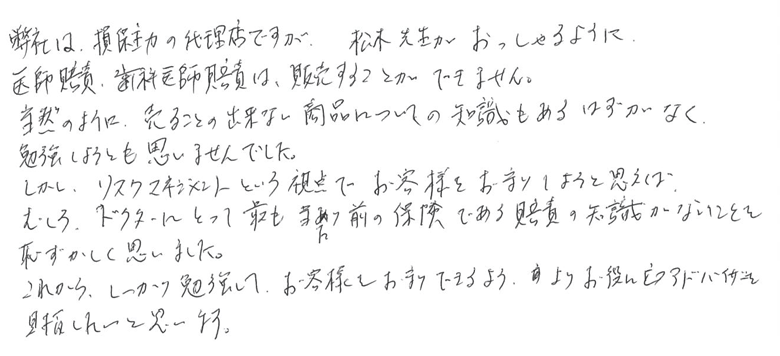 弊社は、損保主力の代理店ですが、松本先生がおっしゃるように、
医師賠責、歯科医師賠責は、販売することができません。
当然のように、売ることの出来ない商品についての知識もあるはずがなく、
勉強しようとも思いませんでした。
しかし、リスクマネジメントという視点でお客様をお守りしようと思えば、
むしろ、ドクターにとって最も当たり前の保険である賠責の知識がないことを
恥ずかしく思いました。
これから、しっかり勉強して、お客様をお守りできるよう、よりお役に立つアドバイザーを
目指したいと思います。